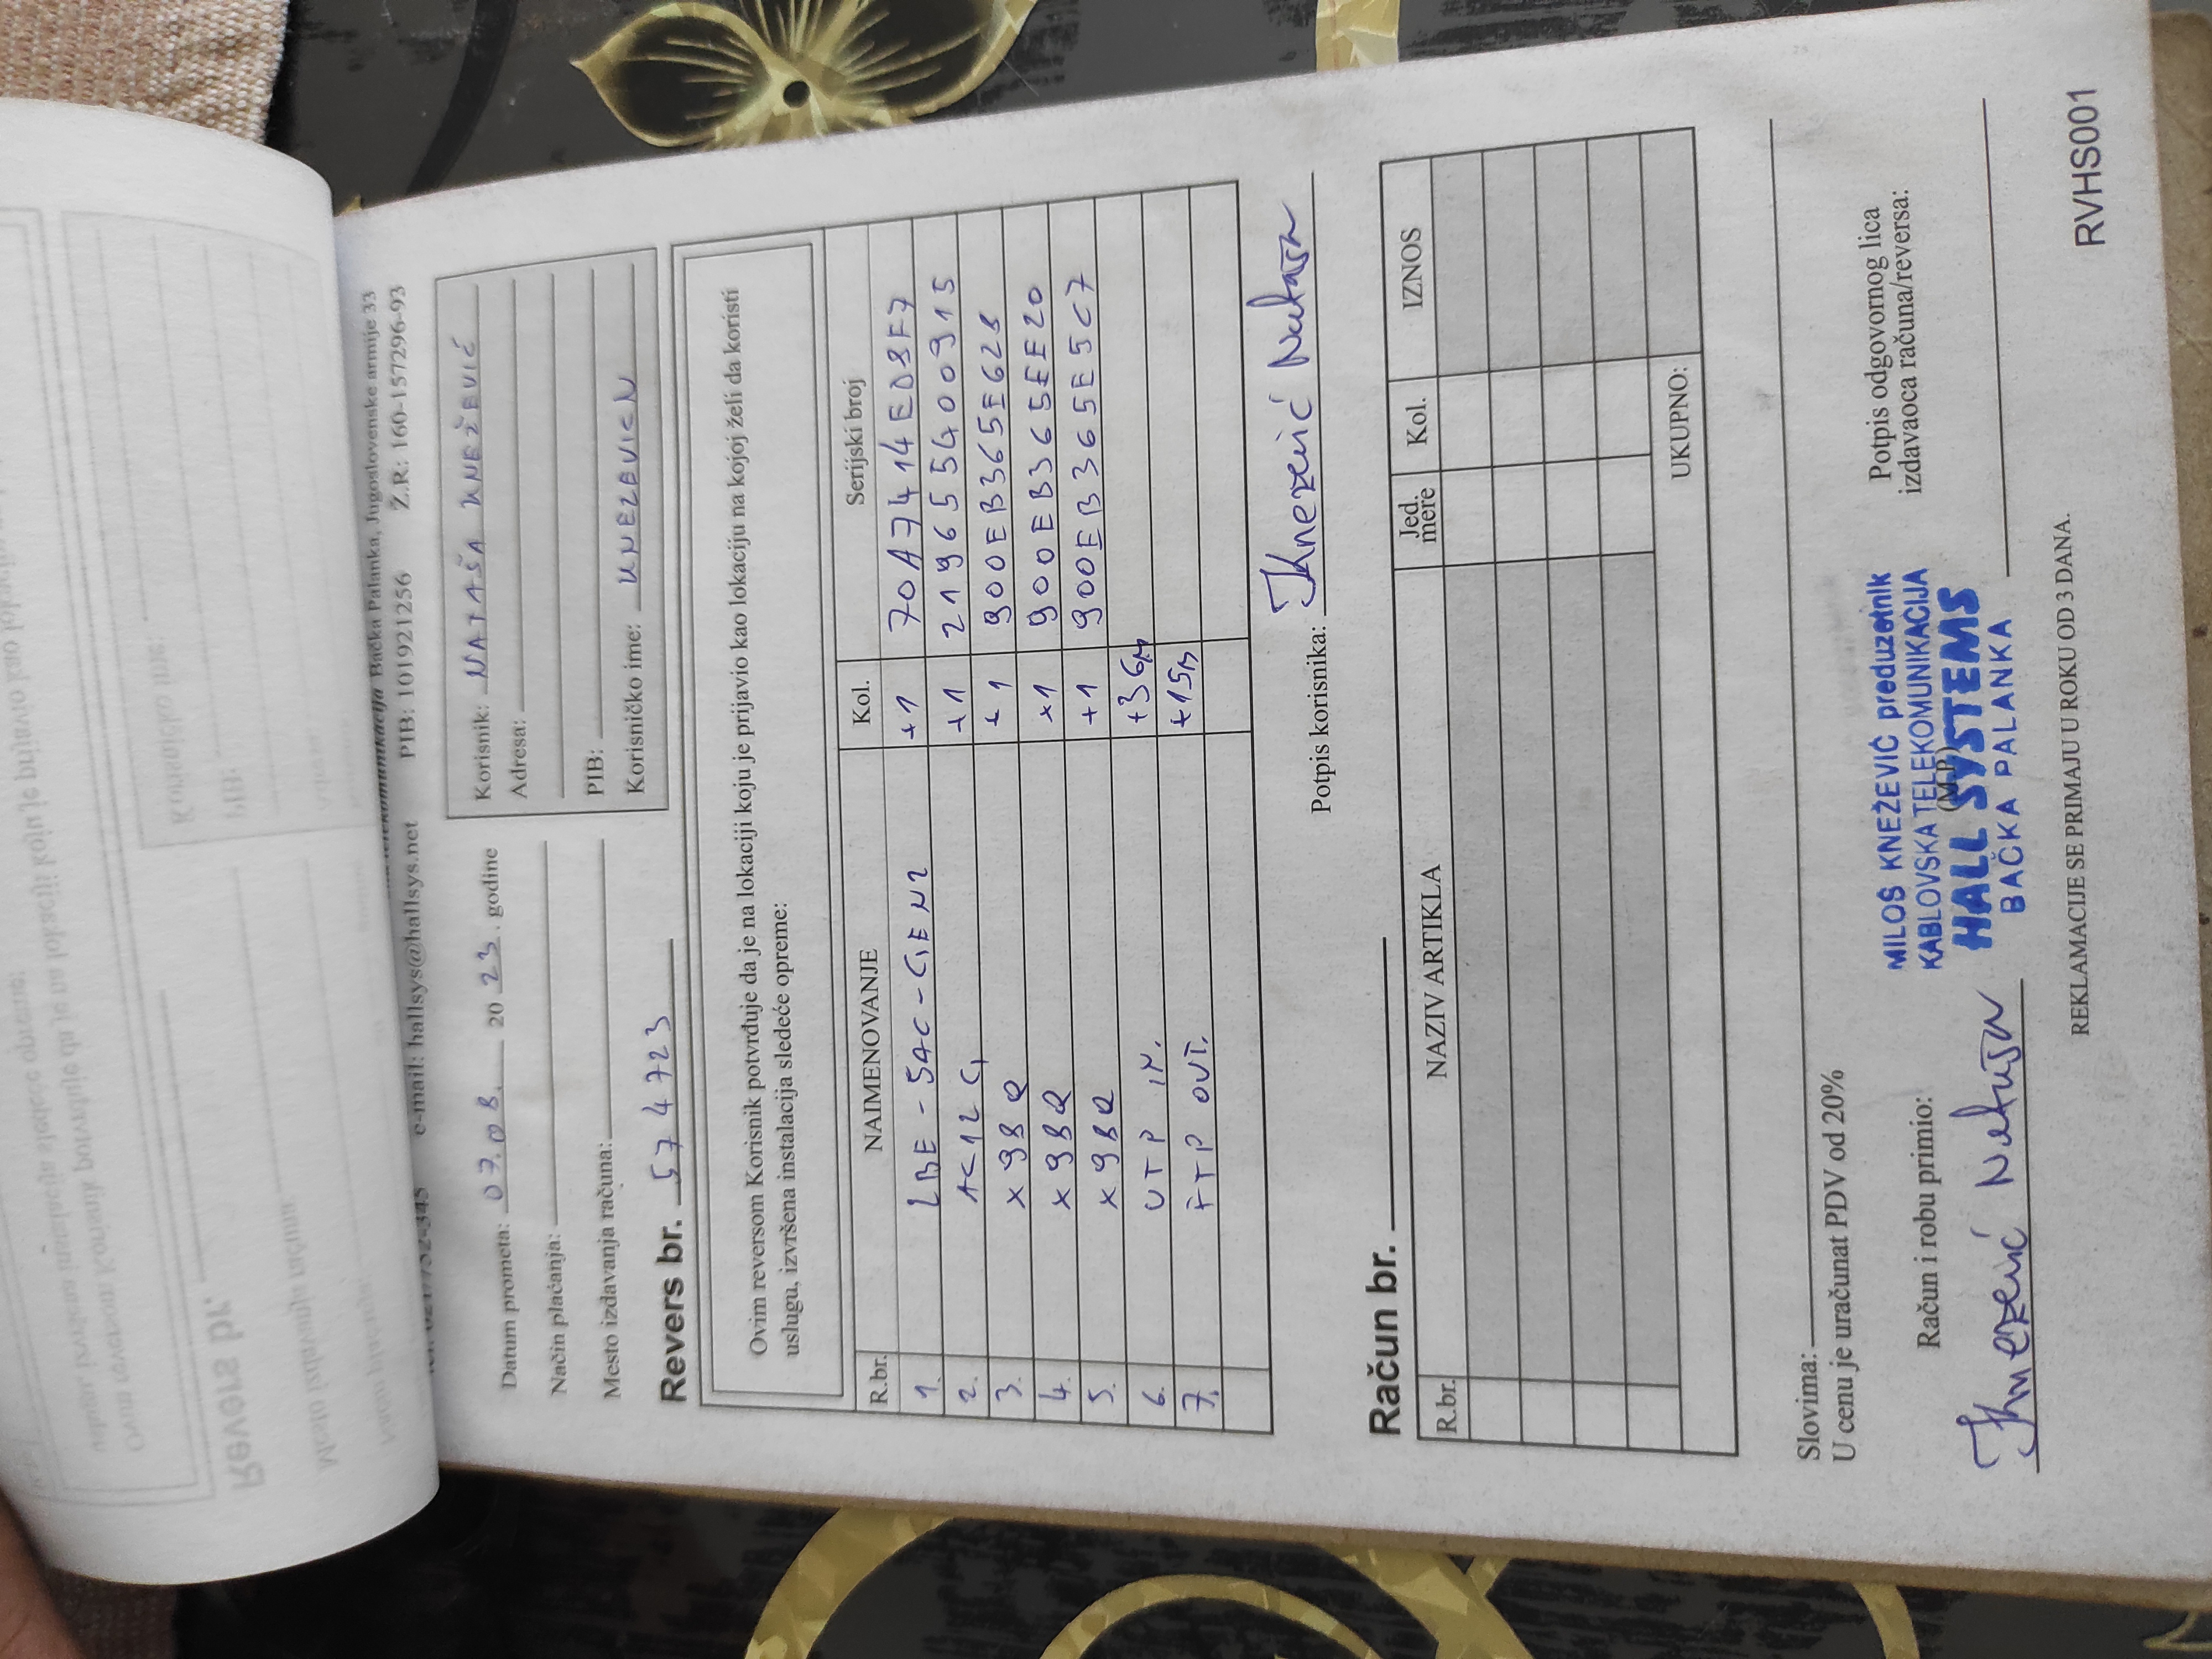 Bačka Palanka, Jugoslovenske armije 33
e-mail: hallsys@hallsys.net PIB: 101921256 Ž.R: 160-157296-93
Datum prometa: 07.08. 2023. godine
Način plaćanja:
Mesto izdavanja računa:
Korisnik: NATAŠA KNEŽEVIĆ
Adresa:
PIB:
Korisničko ime: KNEZEVICN
Revers br. 574723
Ovim reversom Korisnik potvrđuje da je na lokaciji koju je prijavio kao lokaciju na kojoj želi da koristi
uslugu, izvršena instalacija sledeće opreme:
R.br. NAIMENOVANJE Kol. Serijski broj
1. LBE-5AC-GEN2 +1 70A7414ED8F7
2. AC12G +1 219655400915
3. X98Q +1 900EB365E628
4. X98Q +1 900EB365EE20
5. X98Q +1 900EB365E5C7
6. UTP IN. +36m
7. FTP OUT. +15m
Potpis korisnika: Knezević Nataša
Račun br.
R.br. NAZIV ARTIKLA Jed. mere Kol. IZNOS
UKUPNO:
Slovima:
U cenu je uračunat PDV od 20%
Račun i robu primio:
Knezević Nataša
MILOŠ KNEŽEVIĆ preduzetnik
KABLOVSKA TELEKOMUNIKACIJA
(M.P)
HALL SYSTEMS
BAČKA PALANKA
Potpis odgovornog lica
izdavaoca računa/reversa:
REKLAMACIJE SE PRIMAJU U ROKU OD 3 DANA.
RVHS001